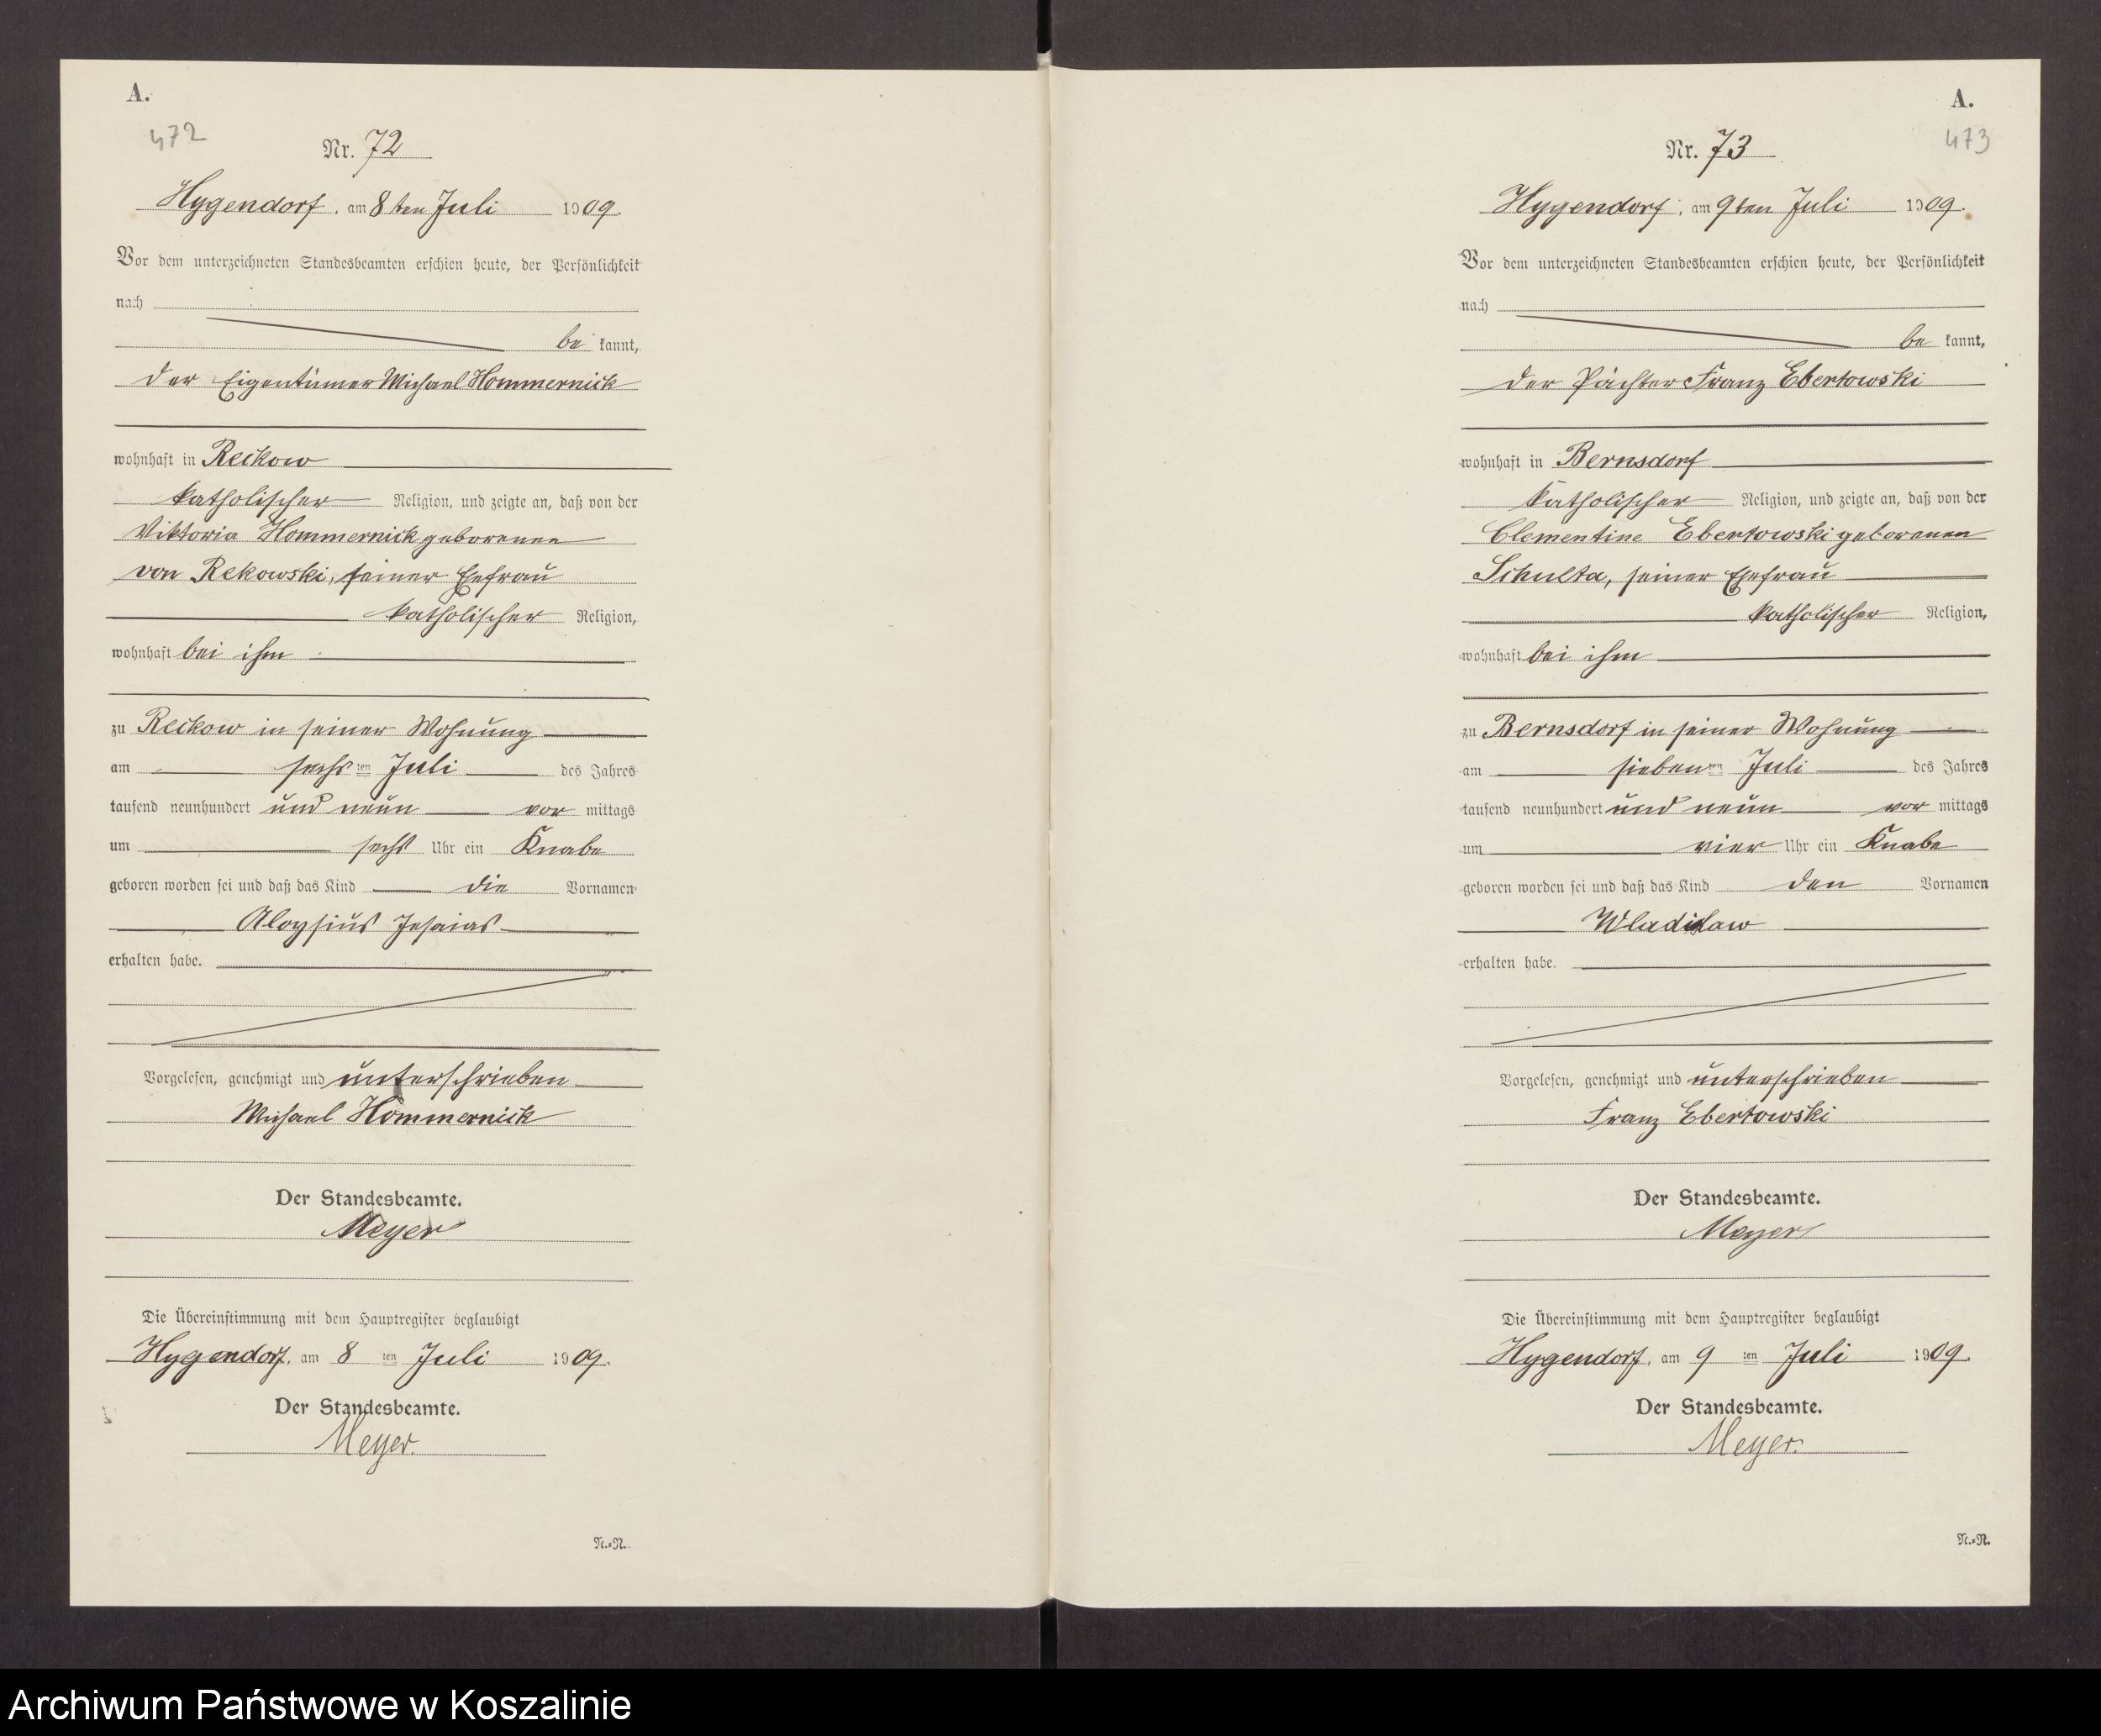 A.
472
Nr. 72
Hygendorf, am 8ten Juli 1909.
Vor dem unterzeichneten Standesbeamten erschien heute, der Persönlichkeit
nach
be kannt,
der Eigentümer Michael Hommernick
wohnhaft in Reckow
katholischer Religion, und zeigte an, daß von der
Viktoria Hommernick geborenen
von Rekowski, seiner Ehefrau
katholischer Religion,
wohnhaft bei ihm
zu Reckow in seiner Wohnung
am sechsten Juli des Jahres
tausend neunhundert und neun vor mittags
um sechs Uhr ein Knabe
geboren worden sei und daß das Kind die Vornamen
Aloysius Jesaias
erhalten habe.
Vorgelesen, genehmigt und unterschrieben
Michael Hommernick
Der Standesbeamte.
Meyer
Die Übereinstimmung mit dem Hauptregister beglaubigt
Hygendorf, am 8 ten Juli 1909.
Der Standesbeamte.
Meyer.
N.=R.
A.
473
Nr. 73
Hygendorf, am 9ten Juli 1909.
Vor dem unterzeichneten Standesbeamten erschien heute, der Persönlichkeit
nach
be kannt,
der Pächter Franz Ebertowski
wohnhaft in Bernsdorf
katholischer Religion, und zeigte an, daß von der
Clementine Ebertowski geborenen
Schulta, seiner Ehefrau
katholischer Religion,
wohnhaft bei ihm
zu Bernsdorf in seiner Wohnung
am siebenten Juli des Jahres
tausend neunhundert und neun vor mittags
um vier Uhr ein Knabe
geboren worden sei und daß das Kind den Vornamen
Wladislaw
erhalten habe.
Vorgelesen, genehmigt und unterschrieben
Franz Ebertowski
Der Standesbeamte.
Meyer
Die Übereinstimmung mit dem Hauptregister beglaubigt
Hygendorf, am 9 ten Juli 1909.
Der Standesbeamte.
Meyer.
N.=R.
Archiwum Państwowe w Koszalinie